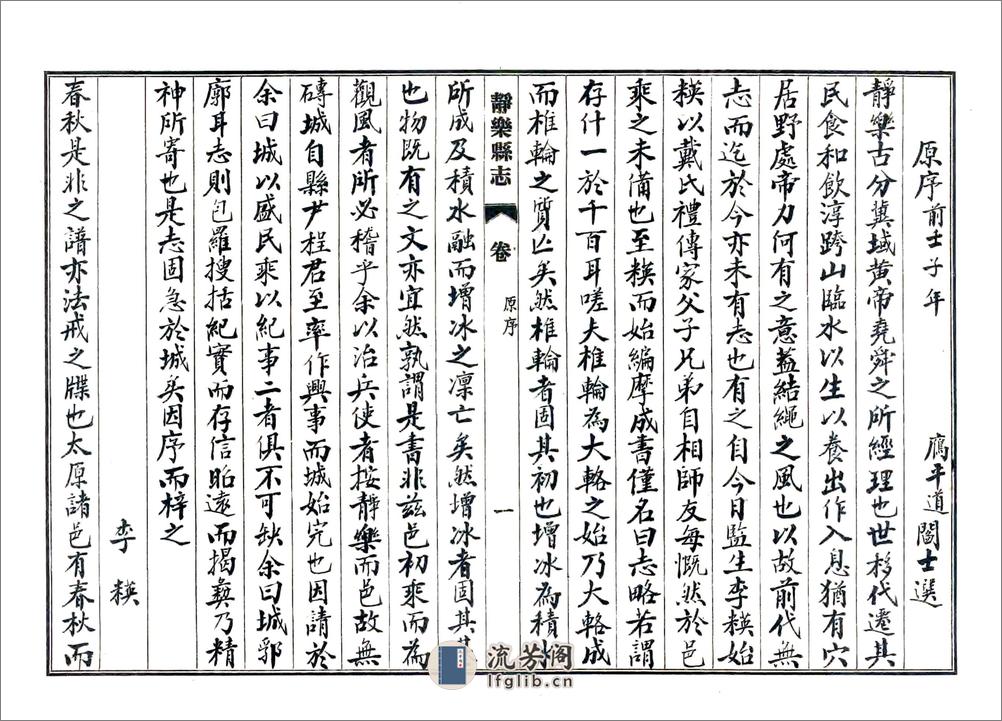 原序 前士子年 鴈平道閻士選
靜樂古分冀域黃帝堯舜之所經理也世移代遷其
民食和飲淳跨山臨水以生以養出作入息猶有穴
居野處帝力何有之意蓋結繩之風也以故前代無
志而迄於今亦未有志也有之自今日監生李模始
模以戴氏禮傳家父子兄弟自相師友每慨然於邑
乘之未備也至模而始編摩成書僅名曰志略若謂
存什一於千百耳嗟夫椎輪為大輅之始乃大輅成
而椎輪之質亾矣然椎輪者固其初也增冰為積水
靜樂縣志 卷 原序 一
所成及積水融而增冰之凜亡矣然增冰者固其
也物既有之文亦宜然孰謂是書非茲邑初乘而為
觀風者所必稽乎余以治兵使者按靜樂而邑故無
磚城自縣尹程君至率作興事而城始完也因請於
余曰城以盛民乘以紀事二者俱不可缺余曰城郛
廓耳志則包羅搜括紀實而存信昭遠而揭彝乃精
神所寄也是志固急於城矣因序而梓之
李模
春秋是非之譜亦法戒之牒也太原諸邑有春秋而
流芳阁
lfglib.cn